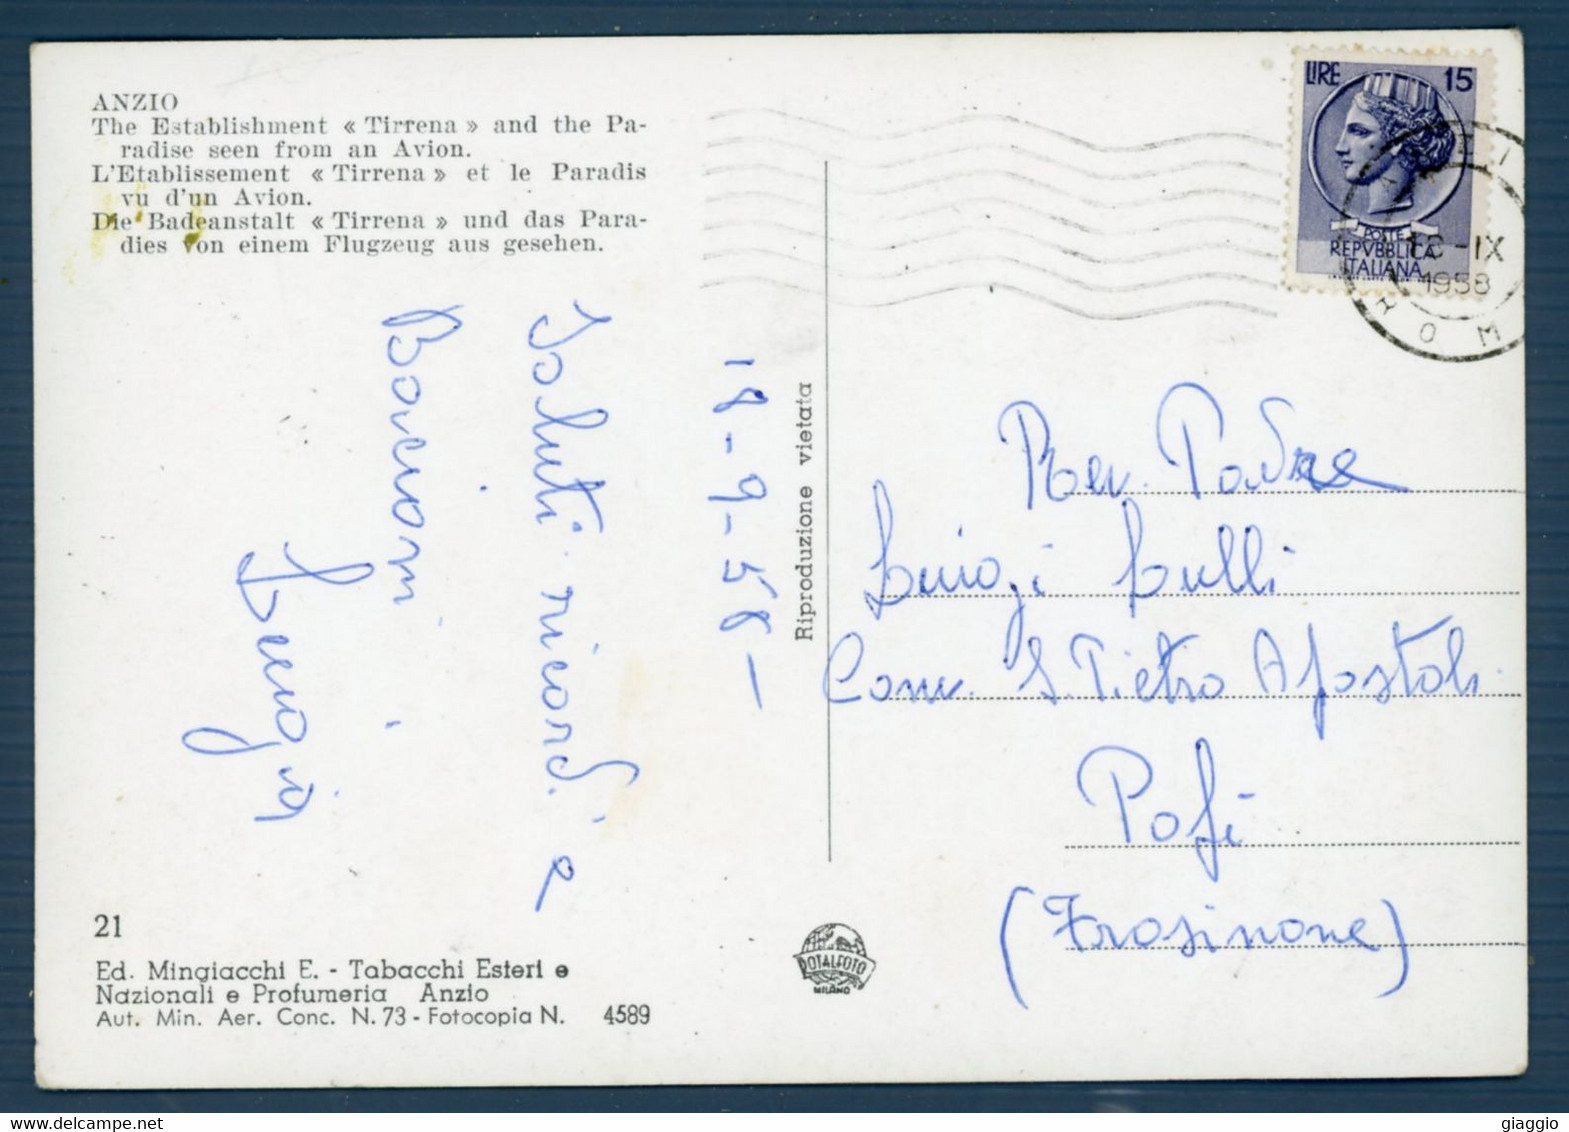 ANZIO
The Establishment « Tirrena » and the Pa-
radise seen from an Avion.
L'Etablissement « Tirrena » et le Paradis
vu d'un Avion.
Die Badeanstalt « Tirrena » und das Para-
dies von einem Flugzeug aus gesehen.
18-9-58-
Saluti ricordi e
Bacioni
Luigia
21
Ed. Mingiacchi E. - Tabacchi Esteri e
Nazionali e Profumeria Anzio
Aut. Min. Aer. Conc. N. 73 - Fotocopia N. 4589
Riproduzione vietata
ROTALFOTO
MILANO
LIRE 15
POSTE
REPVBBLICA
ITALIANA
-IX
1958
ROM
Rev. Padre
Luigi Lulli
Conv. S. Pietro Apostolo
Pofi
(Frosinone)
giaggio
www.delcampe.net